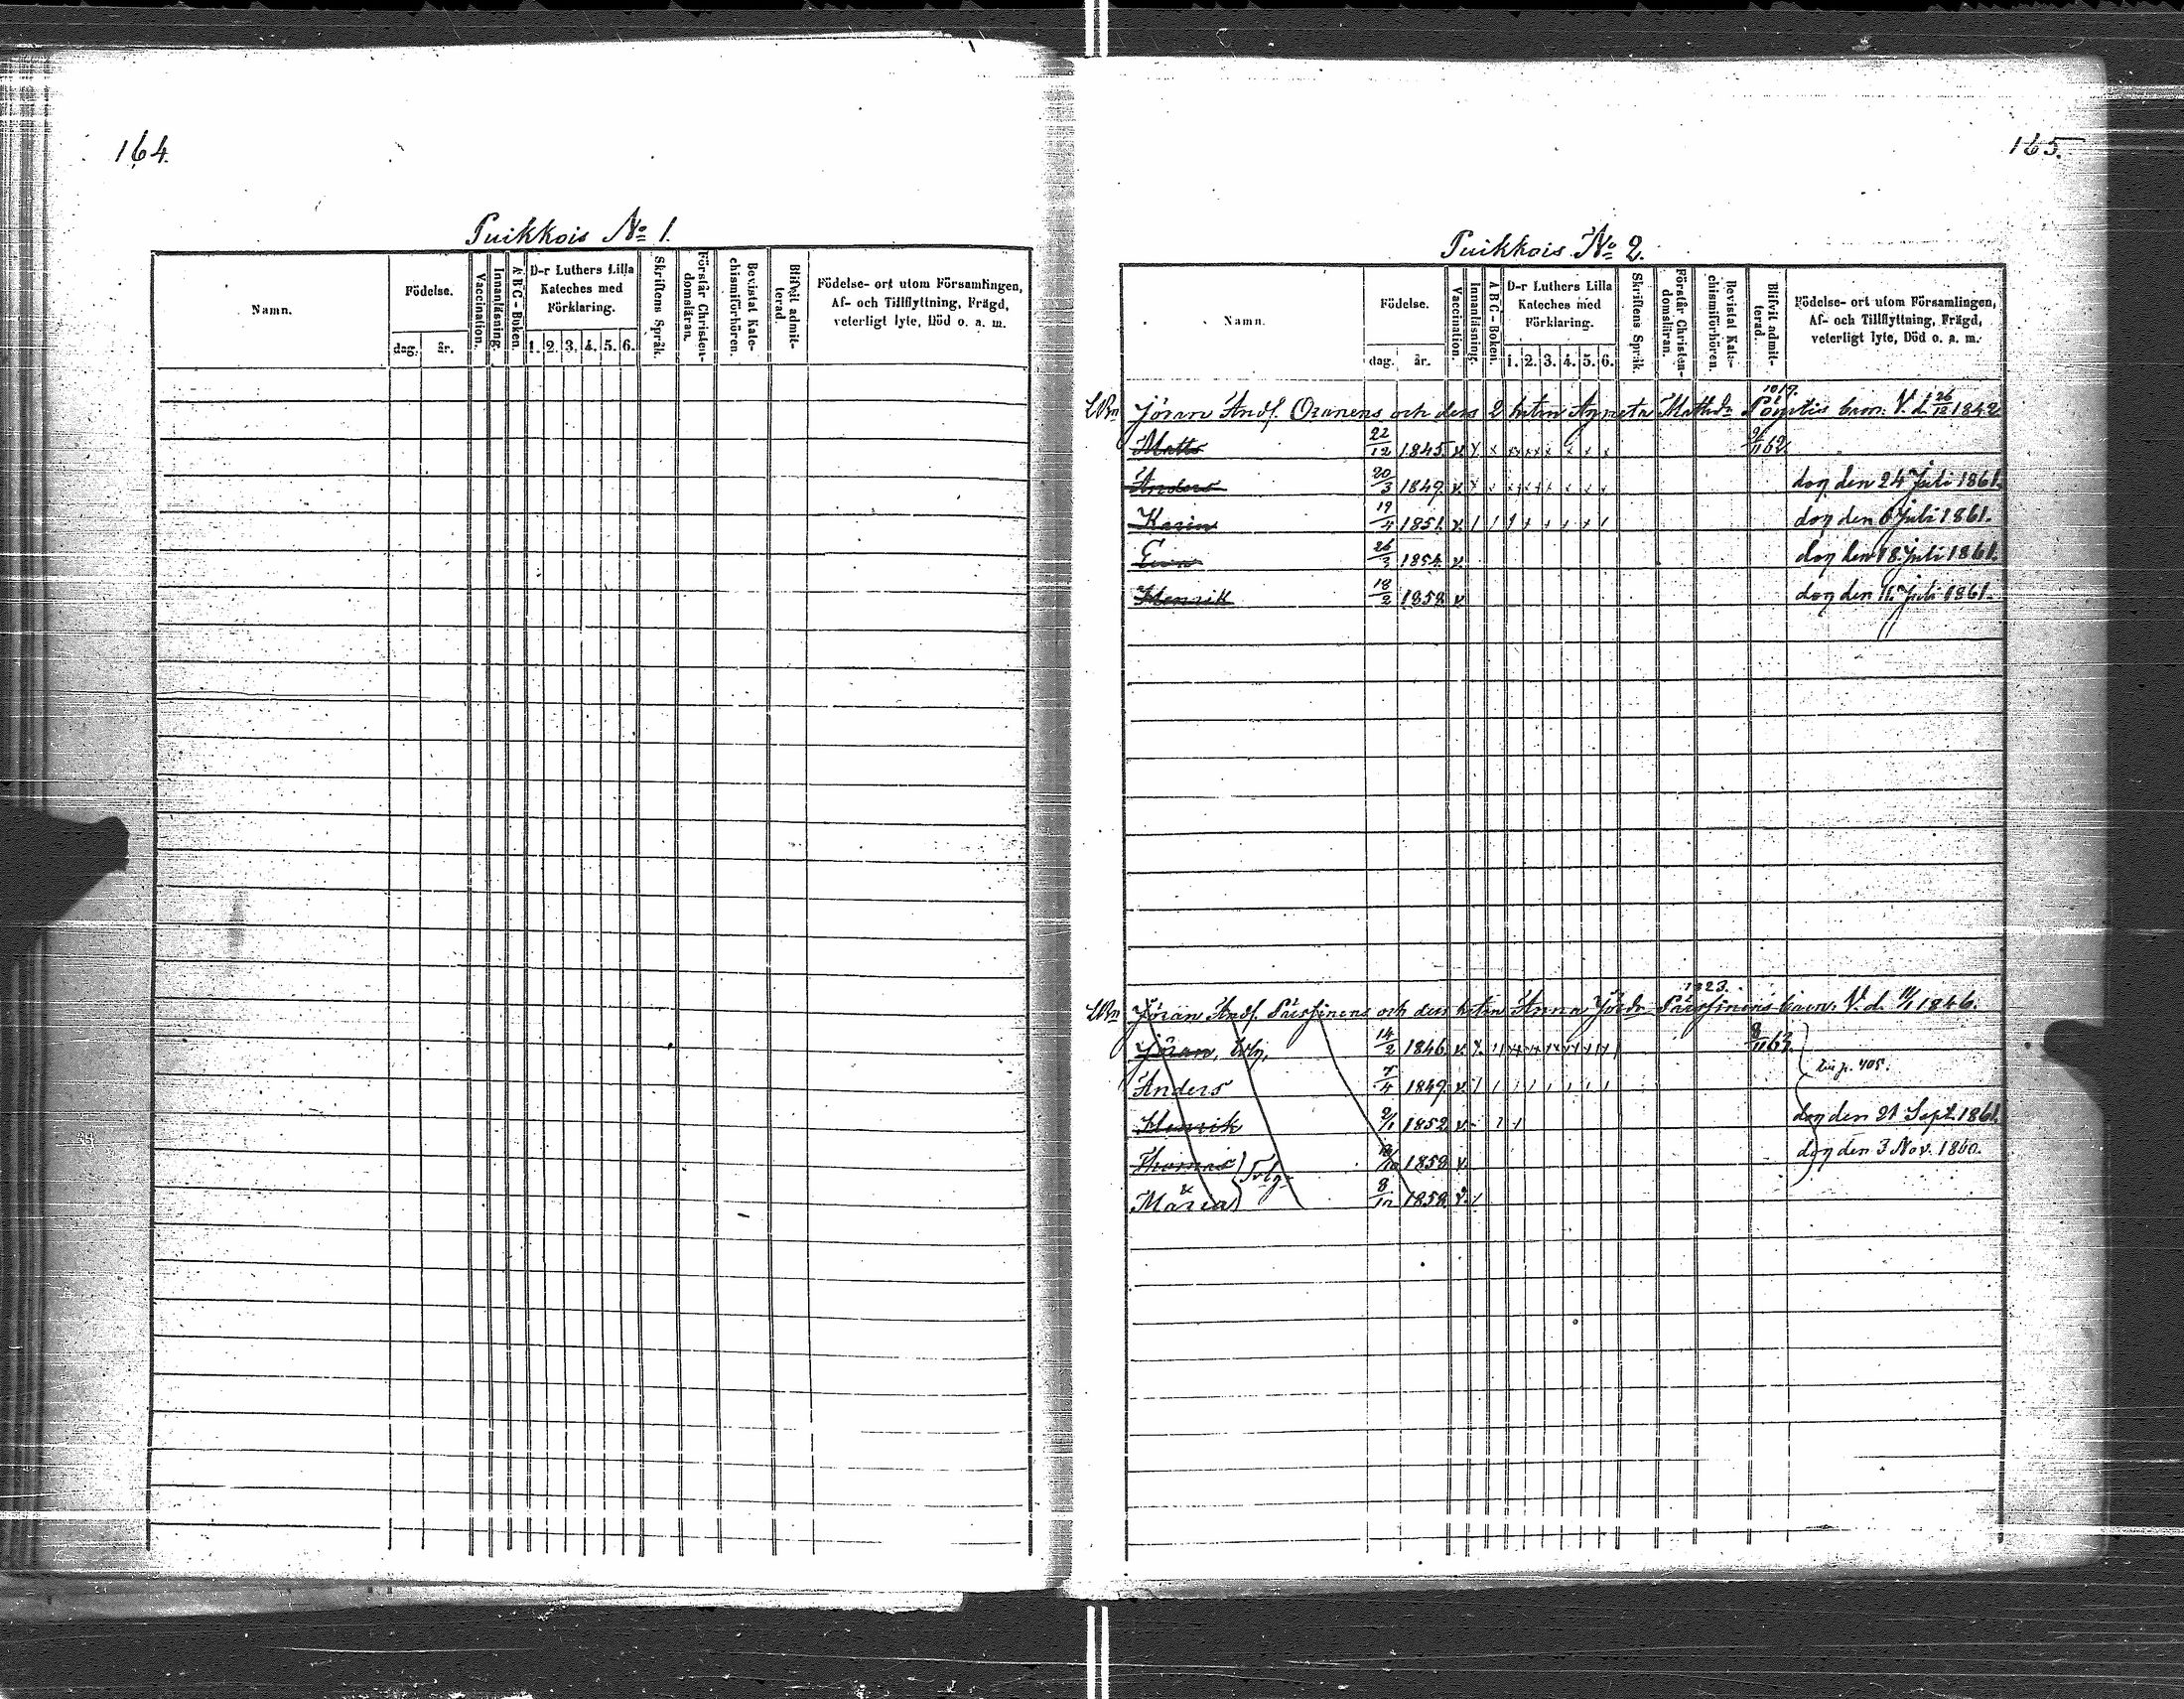 164.
Puikkois No 1.
Namn.
Födelse.
dag.
år.
Vaccination.
Innanläsning.
ABC-Boken.
D-r Luthers Lilla
Kateches med
Förklaring.
1. 2. 3. 4. 5. 6.
Skriftens Språk.
Förstår Christen-
domsläran.
Bevistat Kate-
chismiförhören.
Blifvit admit-
terad.
Födelse- ort utom Församlingen,
Af- och Tillflyttning, Frägd,
veterligt lyte, Död o. a. m.
165.
Puikkois No 2.
Namn.
Födelse.
dag.
år.
Vaccination.
Innanläsning.
ABC-Boken.
D-r Luthers Lilla
Kateches med
Förklaring.
1. 2. 3. 4. 5. 6.
Skriftens Språk.
Förstår Christen-
domsläran.
Bevistat Kate-
chismiförhören.
Blifvit admit-
terad.
Födelse- ort utom Församlingen,
Af- och Tillflyttning, Frägd,
veterligt lyte, Död o. a. m.
Jöran Andf. Oranens och dess 2 hstru Agneta Mattsdr barn. V. d. 26/12 1842
Matts 22/12 1845
Anders 20/3 1849 dog den 24 Juli 1861.
Karin 19/4 1851 dog den 6 Juli 1861.
26/3 1854 dog den 18 Juli 1861.
Henrik 18/2 1858 dog den 11 Juli 1861.
1823.
Jöran Andf. Pärssinens och dess hstru Anna Pärssinens barn. V. d. 1846.
Jöran, 14/2 1846
Anders 1849
Henrik 2/1 1852 dog den 21 Sept. 1861.
Thomas 1858 dog den 3 Nov. 1860.
&
Maria 8/10 1858